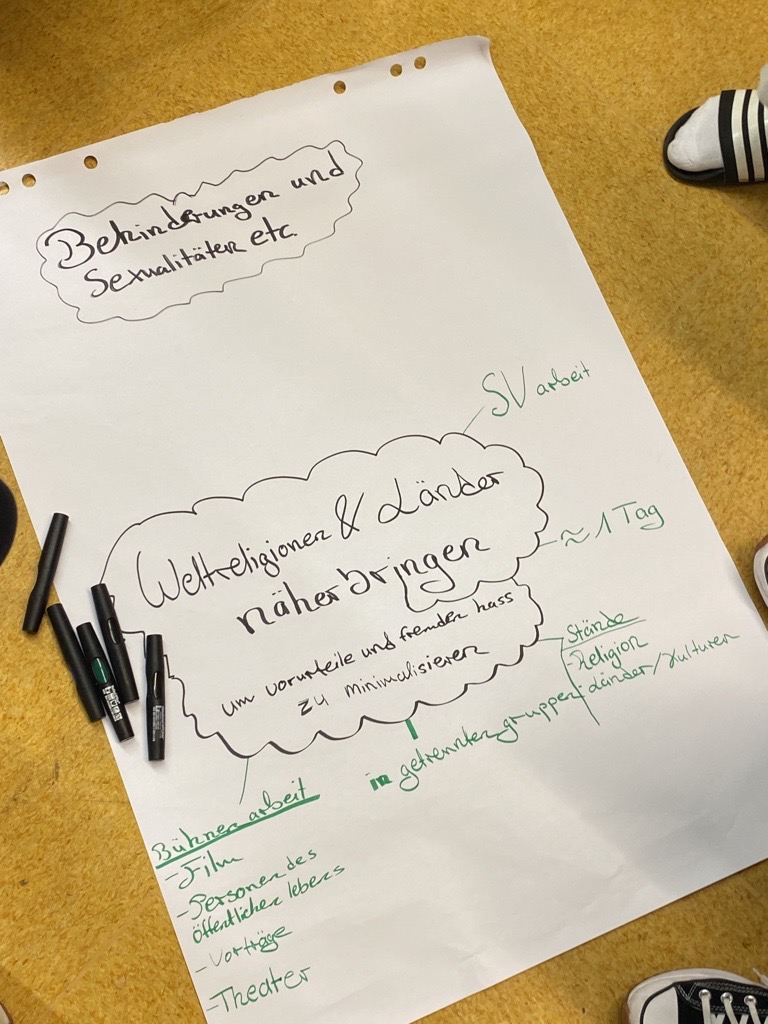 Behinderungen und
Sexualitäten etc.
SV arbeit
Weltreligionen & Länder
näherbringen
≈ 1 Tag
um vorurteile und fremden hass
zu minimalisieren
Stände
- Religion
- Länder/Kulturen
in getrennten gruppen
Bühnen arbeit
- Film
- Personen des
öffentlichen lebens
- Vorträge
- Theater